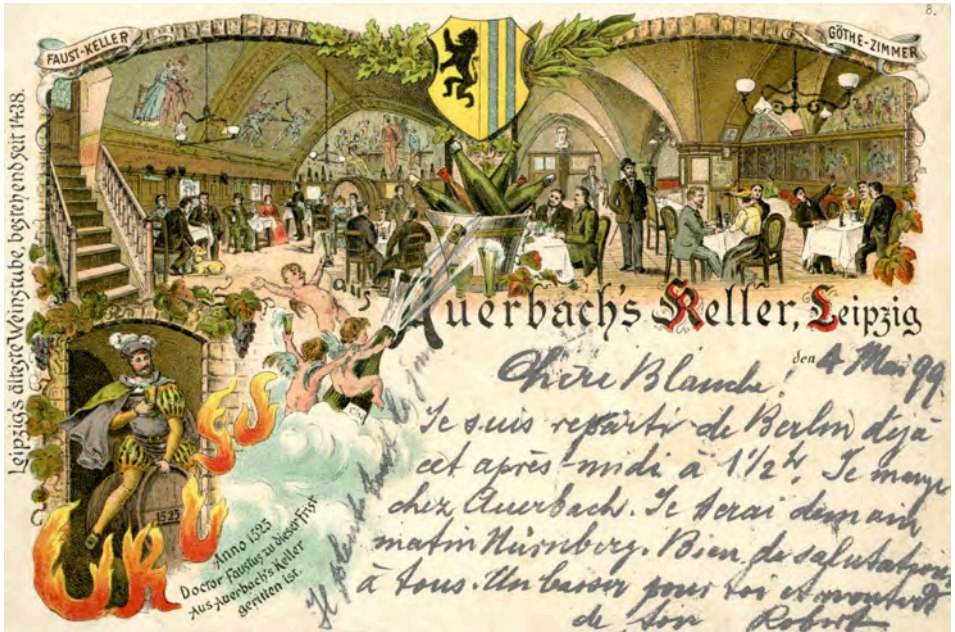 8.
FAUST-KELLER
GÖTHE-ZIMMER
Leipzig's älteste Weinstube, bestehend seit 1438.
GRUSS
aus
Auerbach's Keller, Leipzig
den 4 Mai 99.
Chère Blanche!
Je suis reparti de Berlin déjà
cet après-midi à 1½ h. Je mange
chez Auerbach. Je serai demain
matin Nürnberg. Bien de salutations
à tous. Un baiser pour toi et
de ton Robert
Il
1525
Anno 1525
Doctor Faustus zu dieser Frist
Aus Auerbach's Keller
geritten ist.